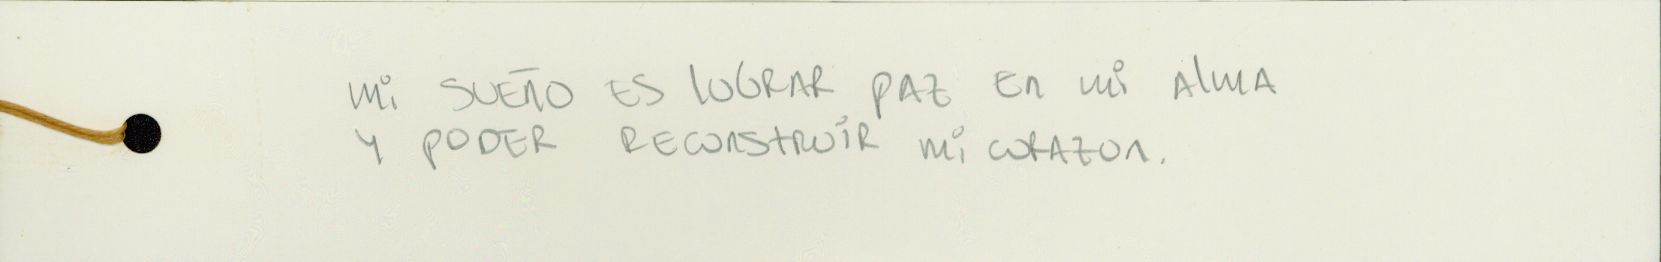 Mi SUEÑO ES LOGRAR PAZ EN Mi ALMA
Y PODER RECONSTRUiR Mi CORAZON.